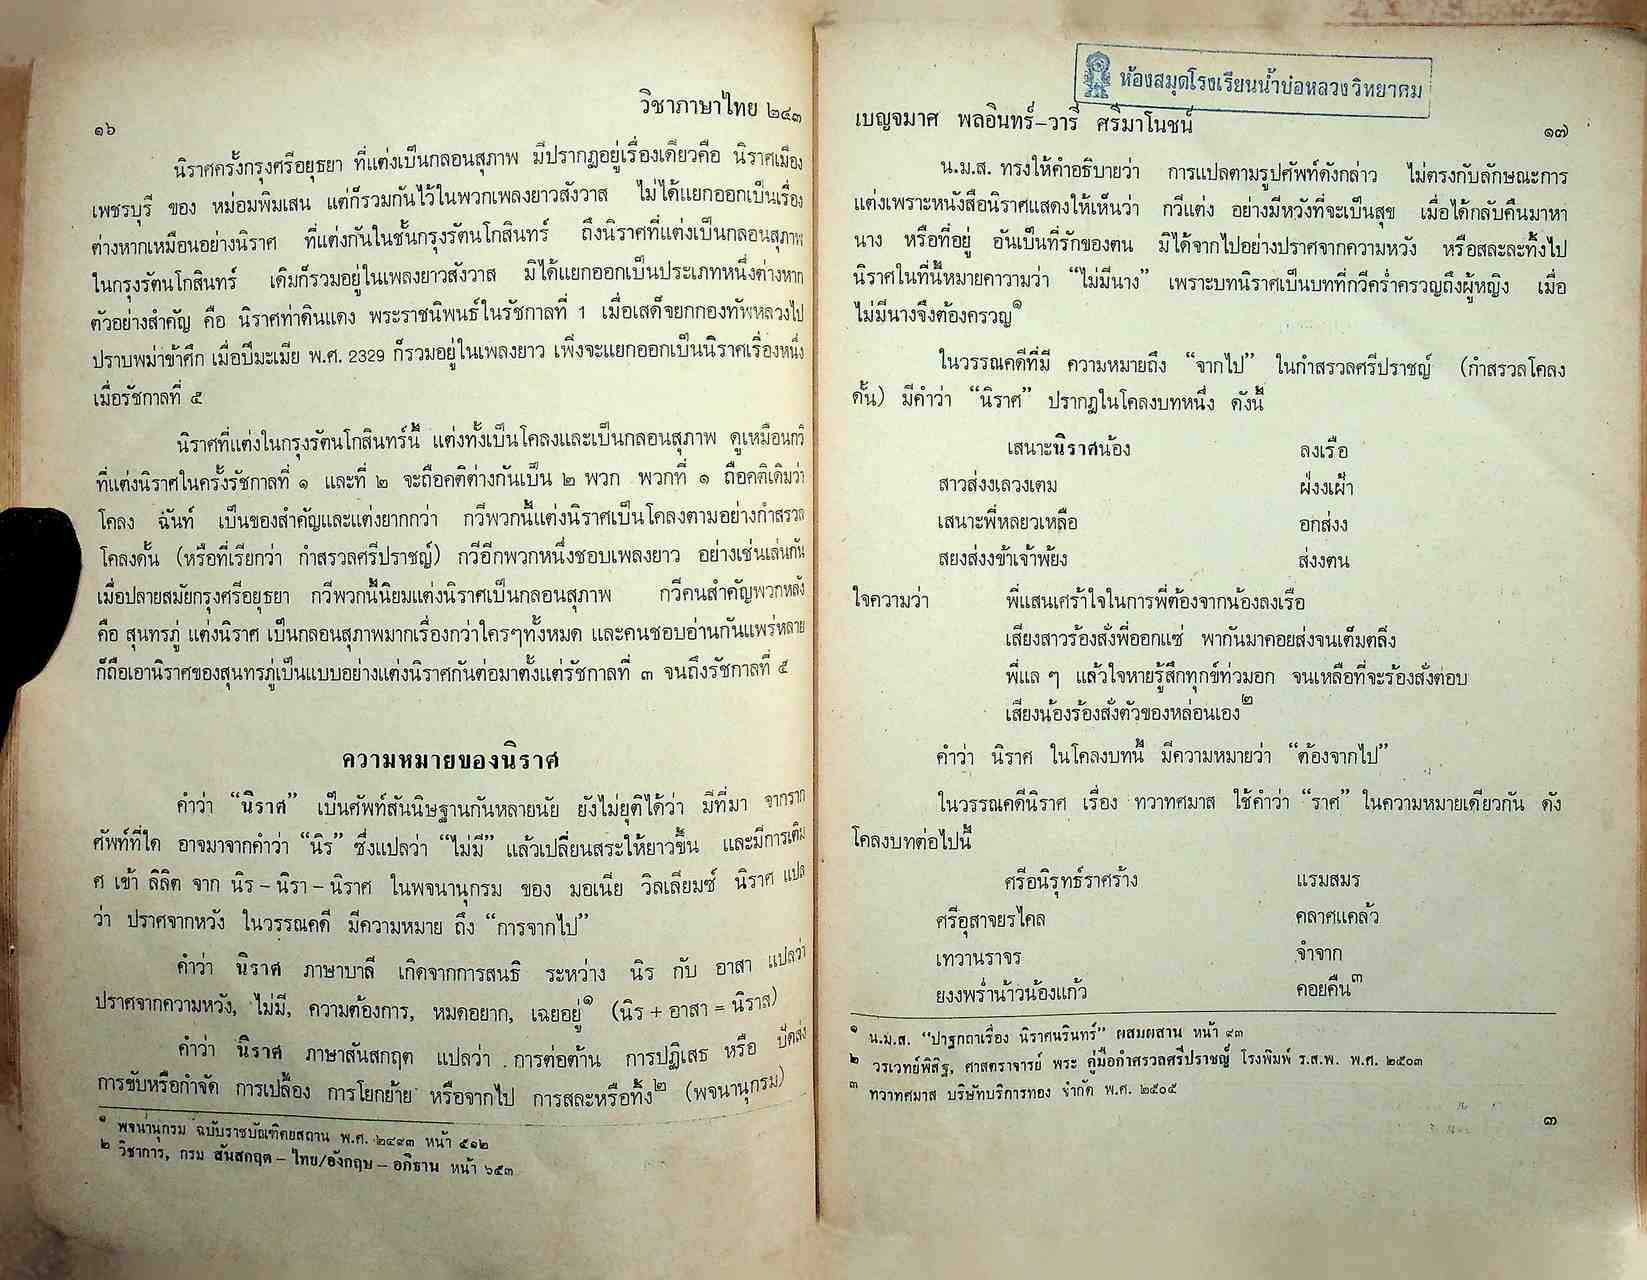 ๑๖
วิชาภาษาไทย ๒๔๓
นิราศครั้งกรุงศรีอยุธยา ที่แต่งเป็นกลอนสุภาพ มีปรากฏอยู่เรื่องเดียวคือ นิราศเมือง
เพชรบุรี ของ หม่อมพิมเสน แต่ก็รวมกันไว้ในพวกเพลงยาวสังวาส ไม่ได้แยกออกเป็นเรื่อง
ต่างหากเหมือนอย่างนิราศ ที่แต่งกันในชั้นกรุงรัตนโกสินทร์ ถึงนิราศที่แต่งเป็นกลอนสุภาพ
ในกรุงรัตนโกสินทร์ เดิมก็รวมอยู่ในเพลงยาวสังวาส มิได้แยกออกเป็นประเภทหนึ่งต่างหาก
ตัวอย่างสำคัญ คือ นิราศท่าดินแดง พระราชนิพนธ์ในรัชกาลที่ 1 เมื่อเสด็จยกกองทัพหลวงไป
ปราบพม่าข้าศึก เมื่อปีมะเมีย พ.ศ. 2329 ก็รวมอยู่ในเพลงยาว เพิ่งจะแยกออกเป็นนิราศเรื่องหนึ่ง
เมื่อรัชกาลที่ ๕
นิราศที่แต่งในกรุงรัตนโกสินทร์นี้ แต่งทั้งเป็นโคลงและเป็นกลอนสุภาพ ดูเหมือนกวี
ที่แต่งนิราศในครั้งรัชกาลที่ ๑ และที่ ๒ จะถือคติต่างกันเป็น ๒ พวก พวกที่ ๑ ถือคติเดิมว่า
โคลง ฉันท์ เป็นของสำคัญและแต่งยากกว่า กวีพวกนี้แต่งนิราศเป็นโคลงตามอย่างกำสรวล
โคลงดั้น (หรือที่เรียกว่า กำสรวลศรีปราชญ์) กวีอีกพวกหนึ่งชอบเพลงยาว อย่างเช่นเล่นกัน
เมื่อปลายสมัยกรุงศรีอยุธยา กวีพวกนี้นิยมแต่งนิราศเป็นกลอนสุภาพ กวีคนสำคัญพวกหลัง
คือ สุนทรภู่ แต่งนิราศ เป็นกลอนสุภาพมากเรื่องกว่าใครๆทั้งหมด และคนชอบอ่านกันแพร่หลาย
ก็ถือเอานิราศของสุนทรภู่เป็นแบบอย่างแต่งนิราศกันต่อมาตั้งแต่รัชกาลที่ ๓ จนถึงรัชกาลที่ ๕
ความหมายของนิราศ
คำว่า “นิราศ” เป็นศัพท์สันนิษฐานกันหลายนัย ยังไม่ยุติได้ว่า มีที่มา จากราก
ศัพท์ที่ใด อาจมาจากคำว่า “นิร” ซึ่งแปลว่า “ไม่มี” แล้วเปลี่ยนสระให้ยาวขึ้น และมีการเติม
ศ เข้า ลิลิต จาก นิร – นิรา – นิราศ ในพจนานุกรม ของ มอเนีย วิลเลียมซ์ นิราศ แปล
ว่า ปราศจากหวัง ในวรรณคดี มีความหมาย ถึง “การจากไป”
คำว่า นิราศ ภาษาบาลี เกิดจากการสนธิ ระหว่าง นิร กับ อาสา แปลว่า
ปราศจากความหวัง, ไม่มี, ความต้องการ, หมดอยาก, เฉยอยู่๑ (นิร + อาสา = นิราส)
คำว่า นิราศ ภาษาสันสกฤต แปลว่า การต่อต้าน การปฏิเสธ หรือ ปัดส่ง
การขับหรือกำจัด การเปลื้อง การโยกย้าย หรือจากไป การสละหรือทิ้ง๒ (พจนานุกรม)
๑ พจนานุกรม ฉบับราชบัณฑิตยสถาน พ.ศ. ๒๔๙๓ หน้า ๕๑๒
๒ วิชาการ, กรม สันสกฤต – ไทย/อังกฤษ – อภิธาน หน้า ๖๕๓
ห้องสมุดโรงเรียนน้ำบ่อหลวงวิทยาคม
เบญจมาศ พลอินทร์–วารี ศรีมาโนชน์
๑๗
น.ม.ส. ทรงให้คำอธิบายว่า การแปลตามรูปศัพท์ดังกล่าว ไม่ตรงกับลักษณะการ
แต่งเพราะหนังสือนิราศแสดงให้เห็นว่า กวีแต่ง อย่างมีหวังที่จะเป็นสุข เมื่อได้กลับคืนมาหา
นาง หรือที่อยู่ อันเป็นที่รักของตน มิได้จากไปอย่างปราศจากความหวัง หรือสละละทิ้งไป
นิราศในที่นี้หมายคาวามว่า “ไม่มีนาง” เพราะบทนิราศเป็นบทที่กวีคร่ำครวญถึงผู้หญิง เมื่อ
ไม่มีนางจึงต้องครวญ๑
ในวรรณคดีที่มี ความหมายถึง “จากไป” ในกำสรวลศรีปราชญ์ (กำสรวลโคลง
ดั้น) มีคำว่า “นิราศ” ปรากฏในโคลงบทหนึ่ง ดังนี้
เสนาะนิราศน้อง ลงเรือ
สาวส่งงเลวงเตม ฝ่งงเฝ้า
เสนาะพี่หลยวเหลือ อกส่งง
สยงส่งงข้าเจ้าพ้ยง ส่งงตน
ใจความว่า พี่แสนเศร้าใจในการพี่ต้องจากน้องลงเรือ
เสียงสาวร้องสั่งพี่ออกแซ่ พากันมาคอยส่งจนเต็มตลิ่ง
พี่แล ๆ แล้วใจหายรู้สึกทุกข์ท่วมอก จนเหลือที่จะร้องสั่งต่อบ
เสียงน้องร้องสั่งตัวของหล่อนเอง๒
คำว่า นิราศ ในโคลงบทนี้ มีความหมายว่า “ต้องจากไป”
ในวรรณคดีนิราศ เรื่อง ทวาทศมาส ใช้คำว่า “ราศ” ในความหมายเดียวกัน ดัง
โคลงบทต่อไปนี้
ศรีอนิรุทธ์ราศร้าง แรมสมร
ศรีอุสาจยรไคล คลาศแคล้ว
เทวานราจร จำจาก
ยงงพร่ำน้าวน้องแก้ว คอยคืน๓
๑ น.ม.ส. “ปาฐกถาเรื่อง นิราศนรินทร์” ผสมผสาน หน้า ๙๓
๒ วรเวทย์พิสิฐ, ศาสตราจารย์ พระ คู่มือกำศรวลศรีปราชญ์ โรงพิมพ์ ร.ส.พ. พ.ศ. ๒๕๐๓
๓ ทวาทศมาส บริษัทบริการทอง จำกัด พ.ศ. ๒๕๐๕
๓